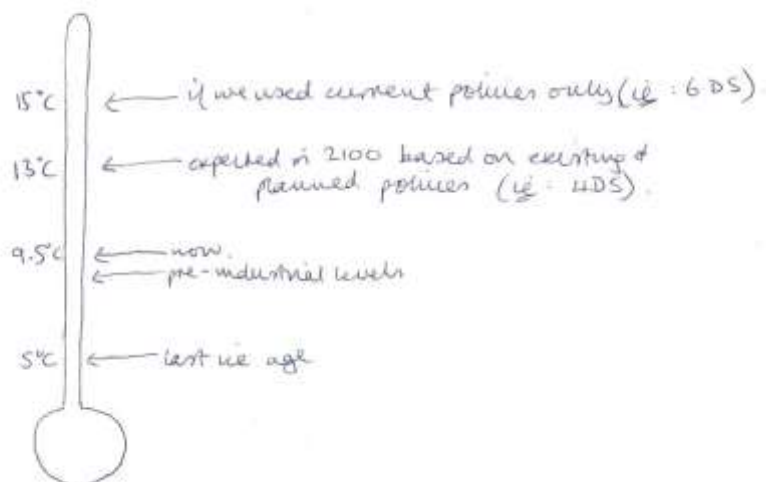 15°C ← if we used current policies only (ie : 6DS)
13°C ← expected in 2100 based on existing &
planned policies (ie : 4DS).
9.5°C ← now.
← pre-industrial levels
5°C ← last ice age